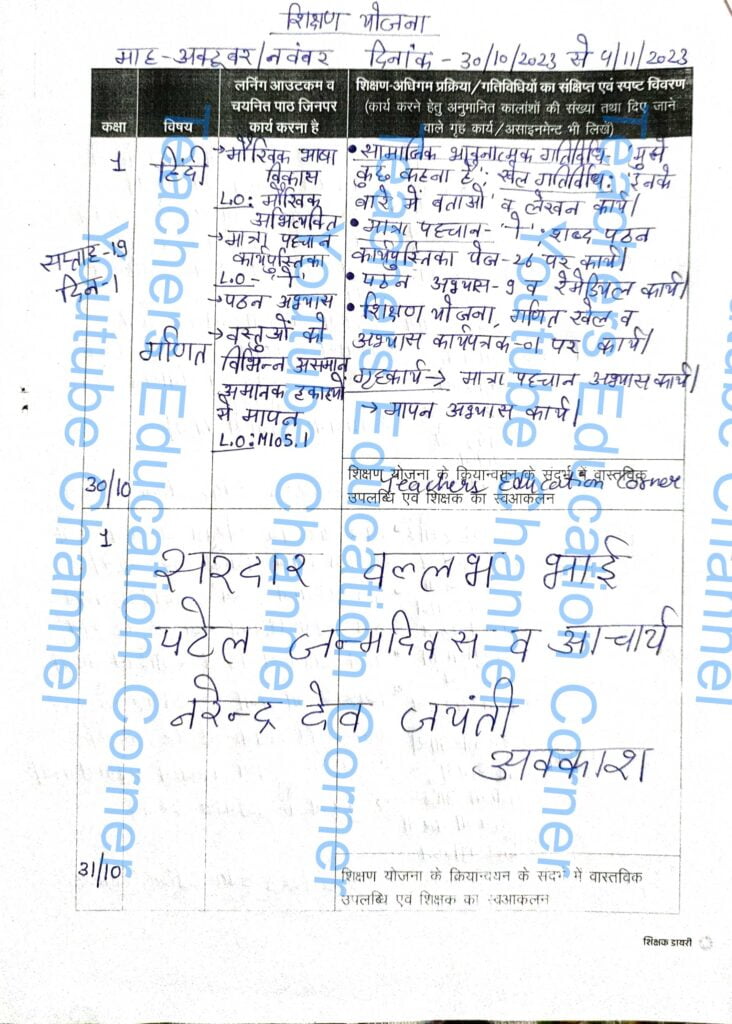 शिक्षण योजना
माह-अक्टूबर/नवंबर दिनांक - 30/10/2023 से 4/11/2023
कक्षा
विषय
लर्निग आउटकम व
चयनित पाठ जिनपर
कार्य करना है
शिक्षण-अधिगम प्रक्रिया/गतिविधियों का संक्षिप्त एवं स्पष्ट विवरण
(कार्य करने हेतु अनुमानित कालांशों की संख्या तथा दिए जाने
वाले गृह कार्य/असाइनमेन्ट भी लिखें)
सप्ताह-19
दिन-1
1
हिंदी
→मौखिक भाषा
विकास
L.O: मौखिक
अभिव्यक्ति
→मात्रा पहचान
कार्यपुस्तिका
L.O-'ो'
→पठन अभ्यास
• सामाजिक भावनात्मक गतिविधि- मुझे
कुछ कहना है, खेल गतिविधि: इनके
बारे में बताओ व लेखन कार्य।
• मात्रा पहचान- 'ो', शब्द पठन
कार्यपुस्तिका पेज-26 पर कार्य।
• पठन अभ्यास-9 व रेमेडियल कार्य।
गणित
→वस्तुओं को
विभिन्न असमान
अमानक इकाइयों
से मापन
L.O:M105.1
• शिक्षण योजना, गणित खेल व
अभ्यास कार्यपत्रक-01 पर कार्य।
गृहकार्य→ मात्रा पहचान अभ्यास कार्य।
→ मापन अभ्यास कार्य।
30/10
शिक्षण योजना के क्रियान्वयन के संदर्भ में वास्तविक
उपलब्धि एवं शिक्षक का स्वआकलन
Teachers Education Corner
1
सरदार वल्लभ भाई
पटेल जन्मदिवस व आचार्य
नरेन्द्र देव जयंती
अवकाश
31/10
शिक्षण योजना के क्रियान्वयन के संदर्भ में वास्तविक
उपलब्धि एवं शिक्षक का स्वआकलन
शिक्षक डायरी
Teachers Education Corner
Youtube Channel
Teachers Education Corner
Youtube Channel
Teachers Education Corner
Youtube Channel